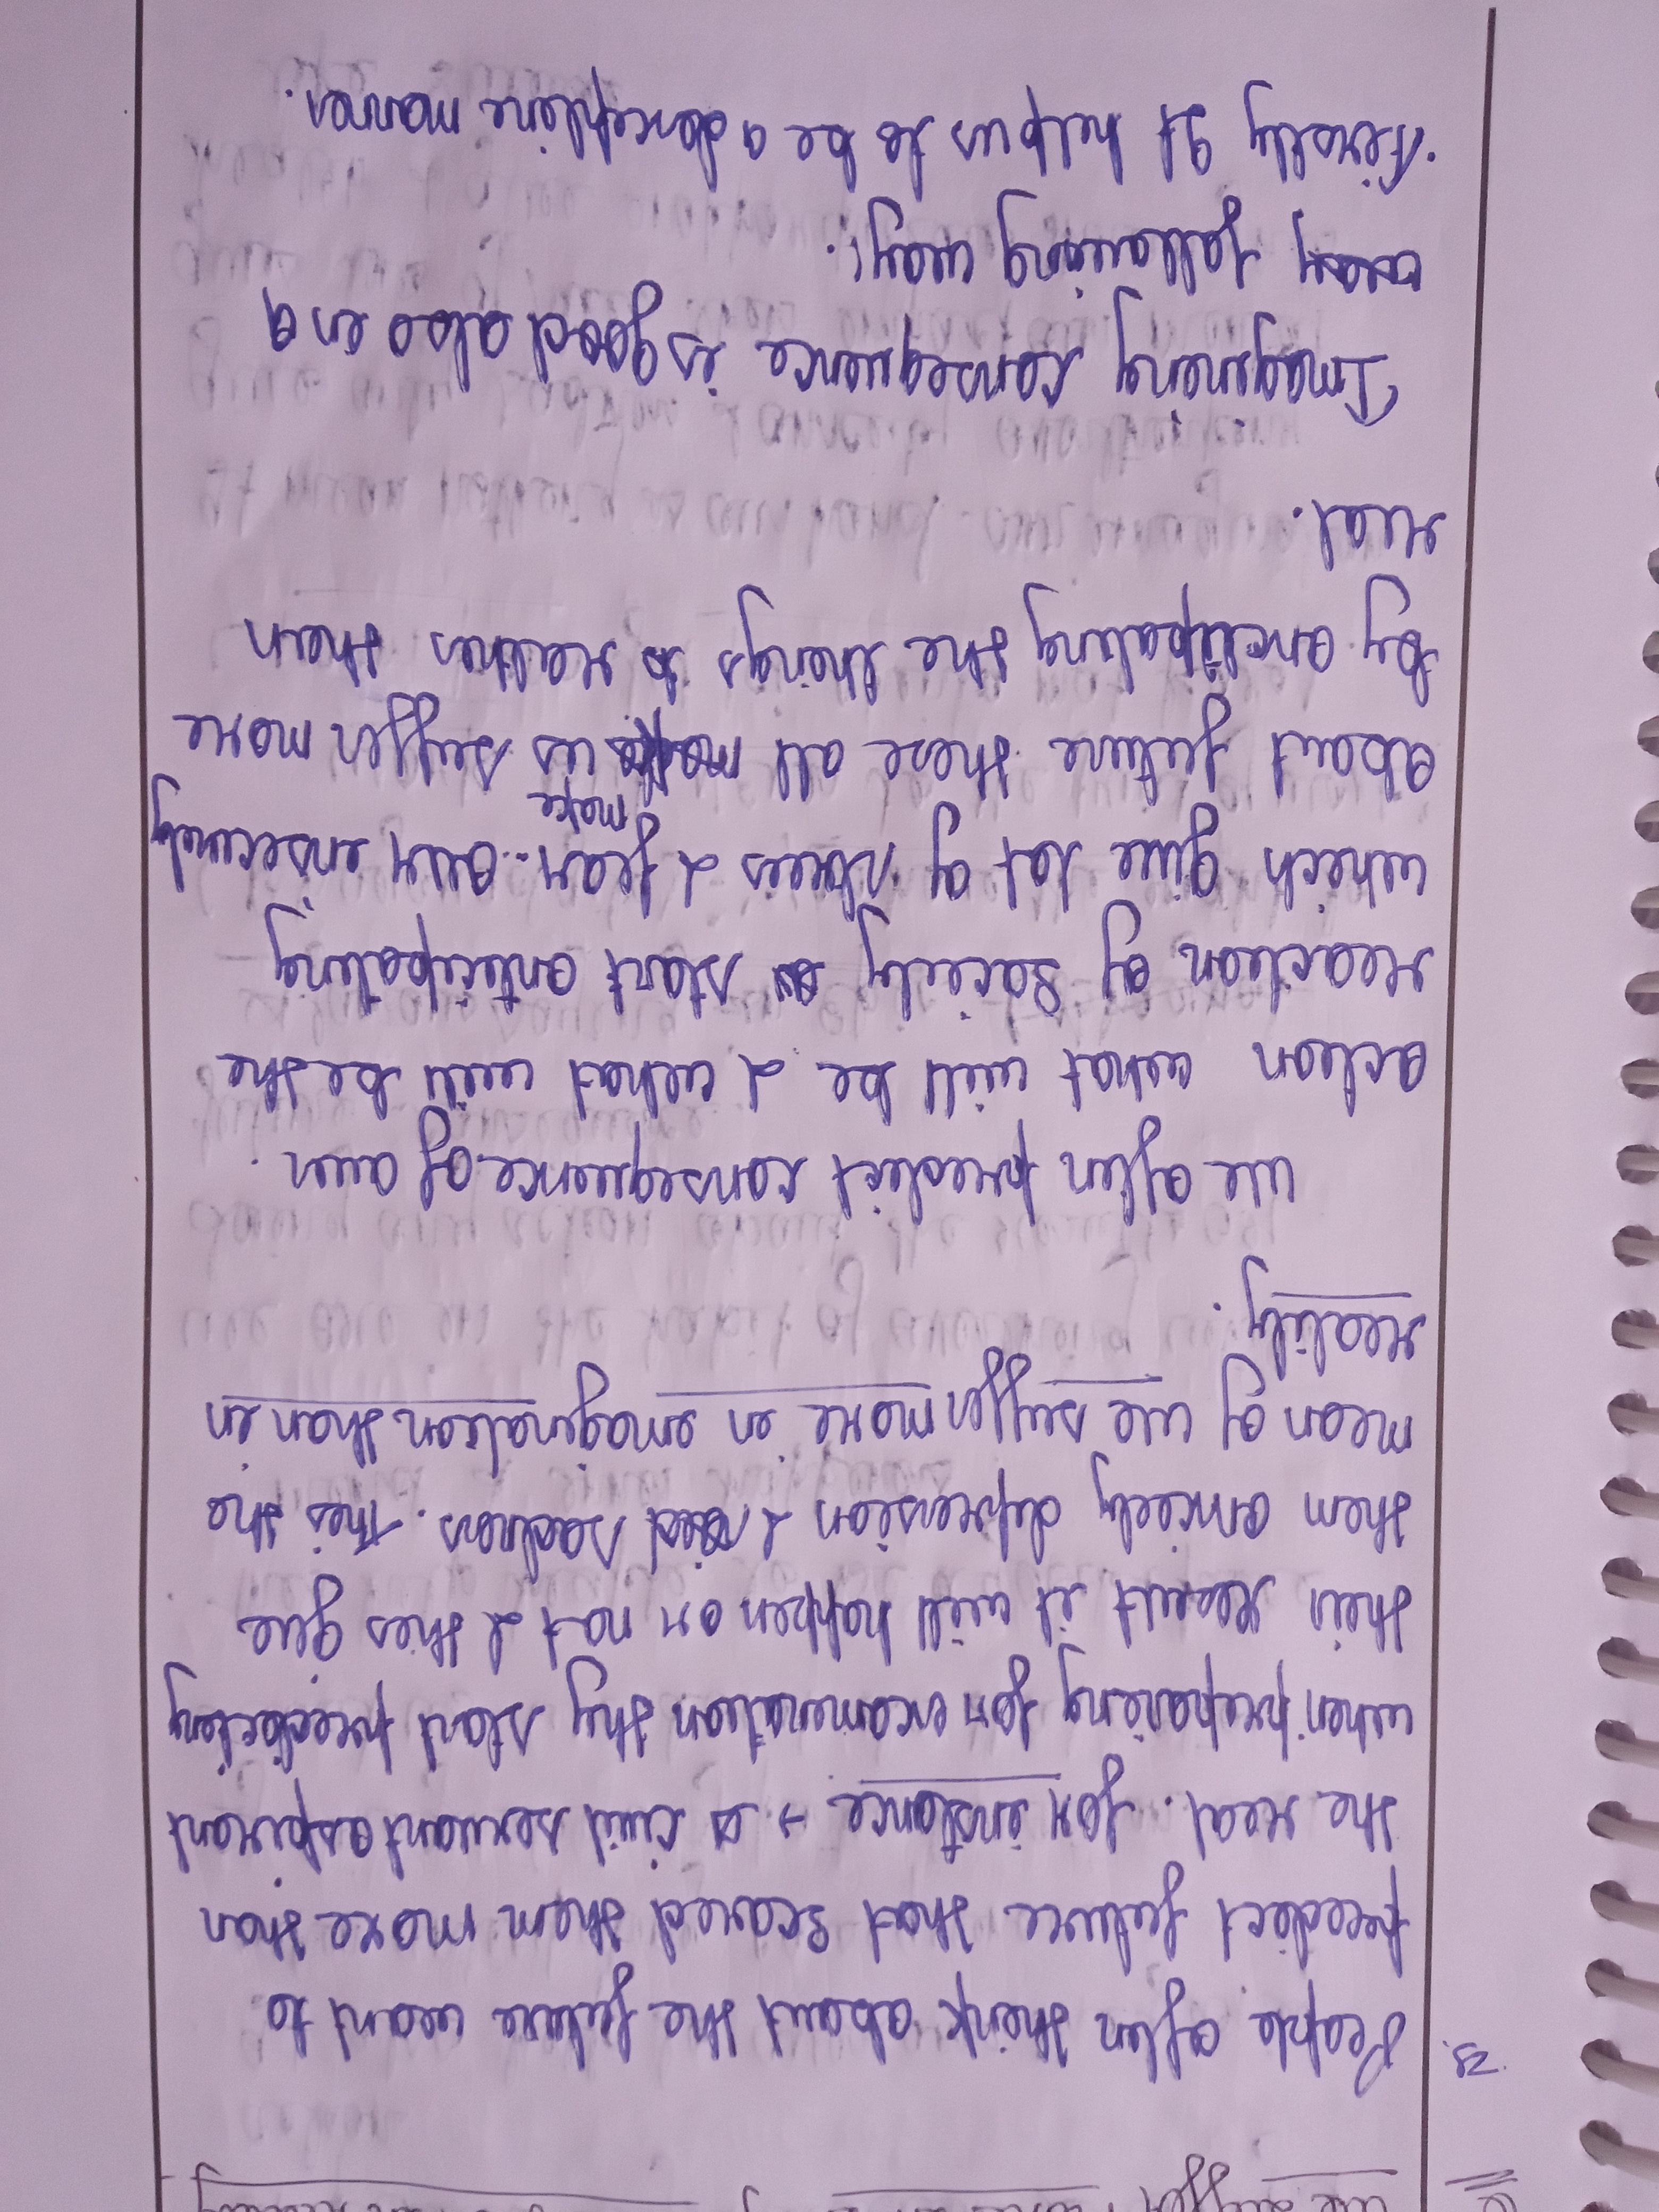 we suffer
Ex.
People often think about the future want to
predict future that scared them more than
the real. for instance → a civil servant aspirant
when preparing for examination they start predicting
their result it will happen or not & this give
them anxiety depression & sadness. This the
mean of we suffer more in imagination than in
reality.
we often predict consequence of own
action what will be & what will be the
reaction of Society start anticipating
which give lot of stress & fear. Our insecurity
make
about future these all us suffer more
By anticipating the things rather than
real.
Imagining consequence is good also in a
following way:
Firstly It help us to be a disciplene manner.